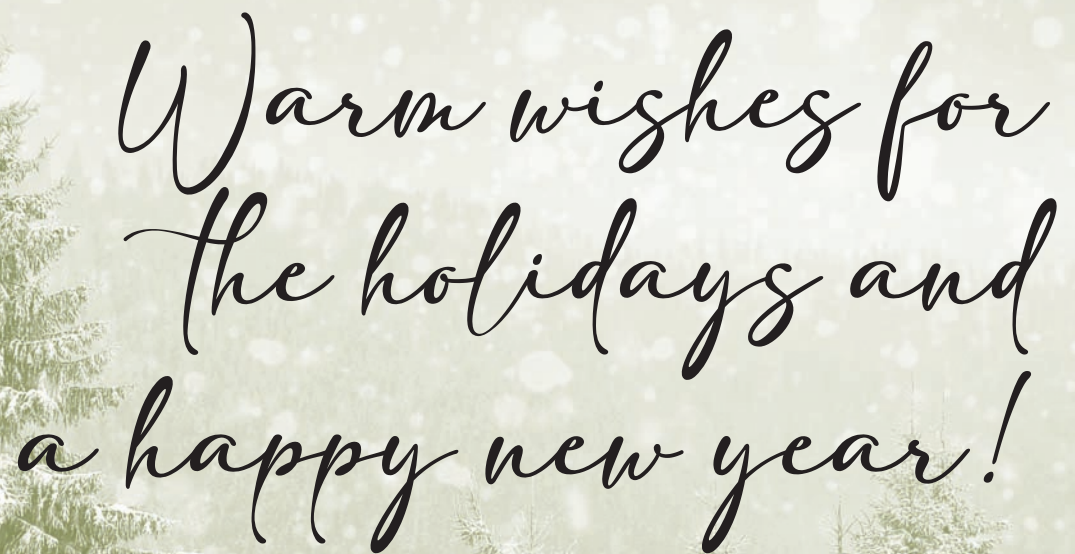 Warm wishes for
the holidays and
a happy new year!